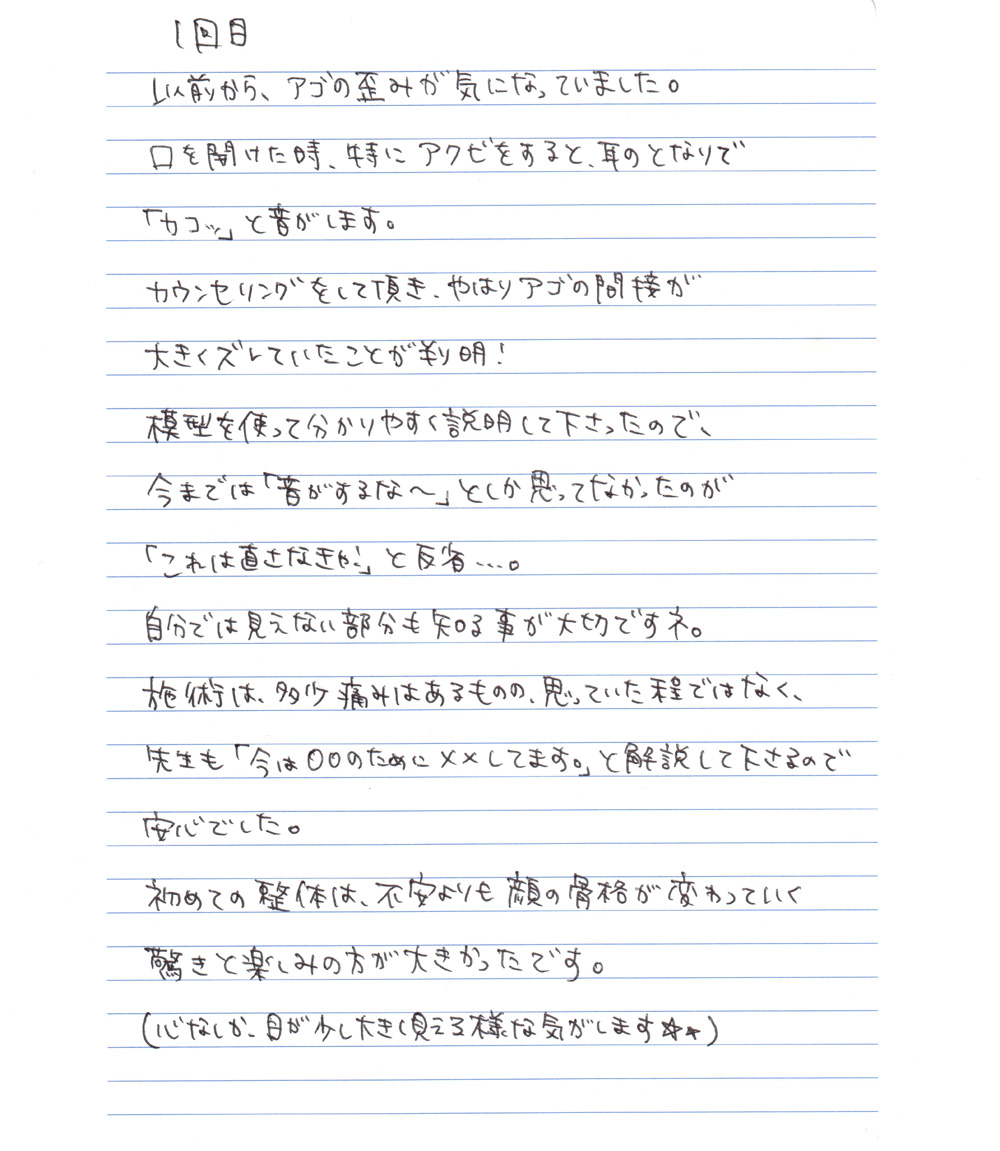 1回目
以前から、アゴの歪みが気になっていました。
口を開けた時、特にアクビをすると、耳のとなりで
「カコッ」と音がします。
カウンセリングをして頂き、やはりアゴの間接が
大きくズレていたことが判明!
模型を使って分かりやすく説明して下さったので、
今まではは「音がするな〜」としか思ってなかったのが
「これは直さなきゃ!」と反省…。
自分では見えない部分も知る事が大切ですネ。
施術は、多少痛みはあるものの、思っていた程ではなく、
先生も「今は〇〇のために××してます。」と解説して下さるので
安心でした。
初めての整体は、不安よりも顔の骨格が変わっていく
驚きと楽しみの方が大きかったです。
(心なしか、目が少し大きく見える様な気がします☆★)